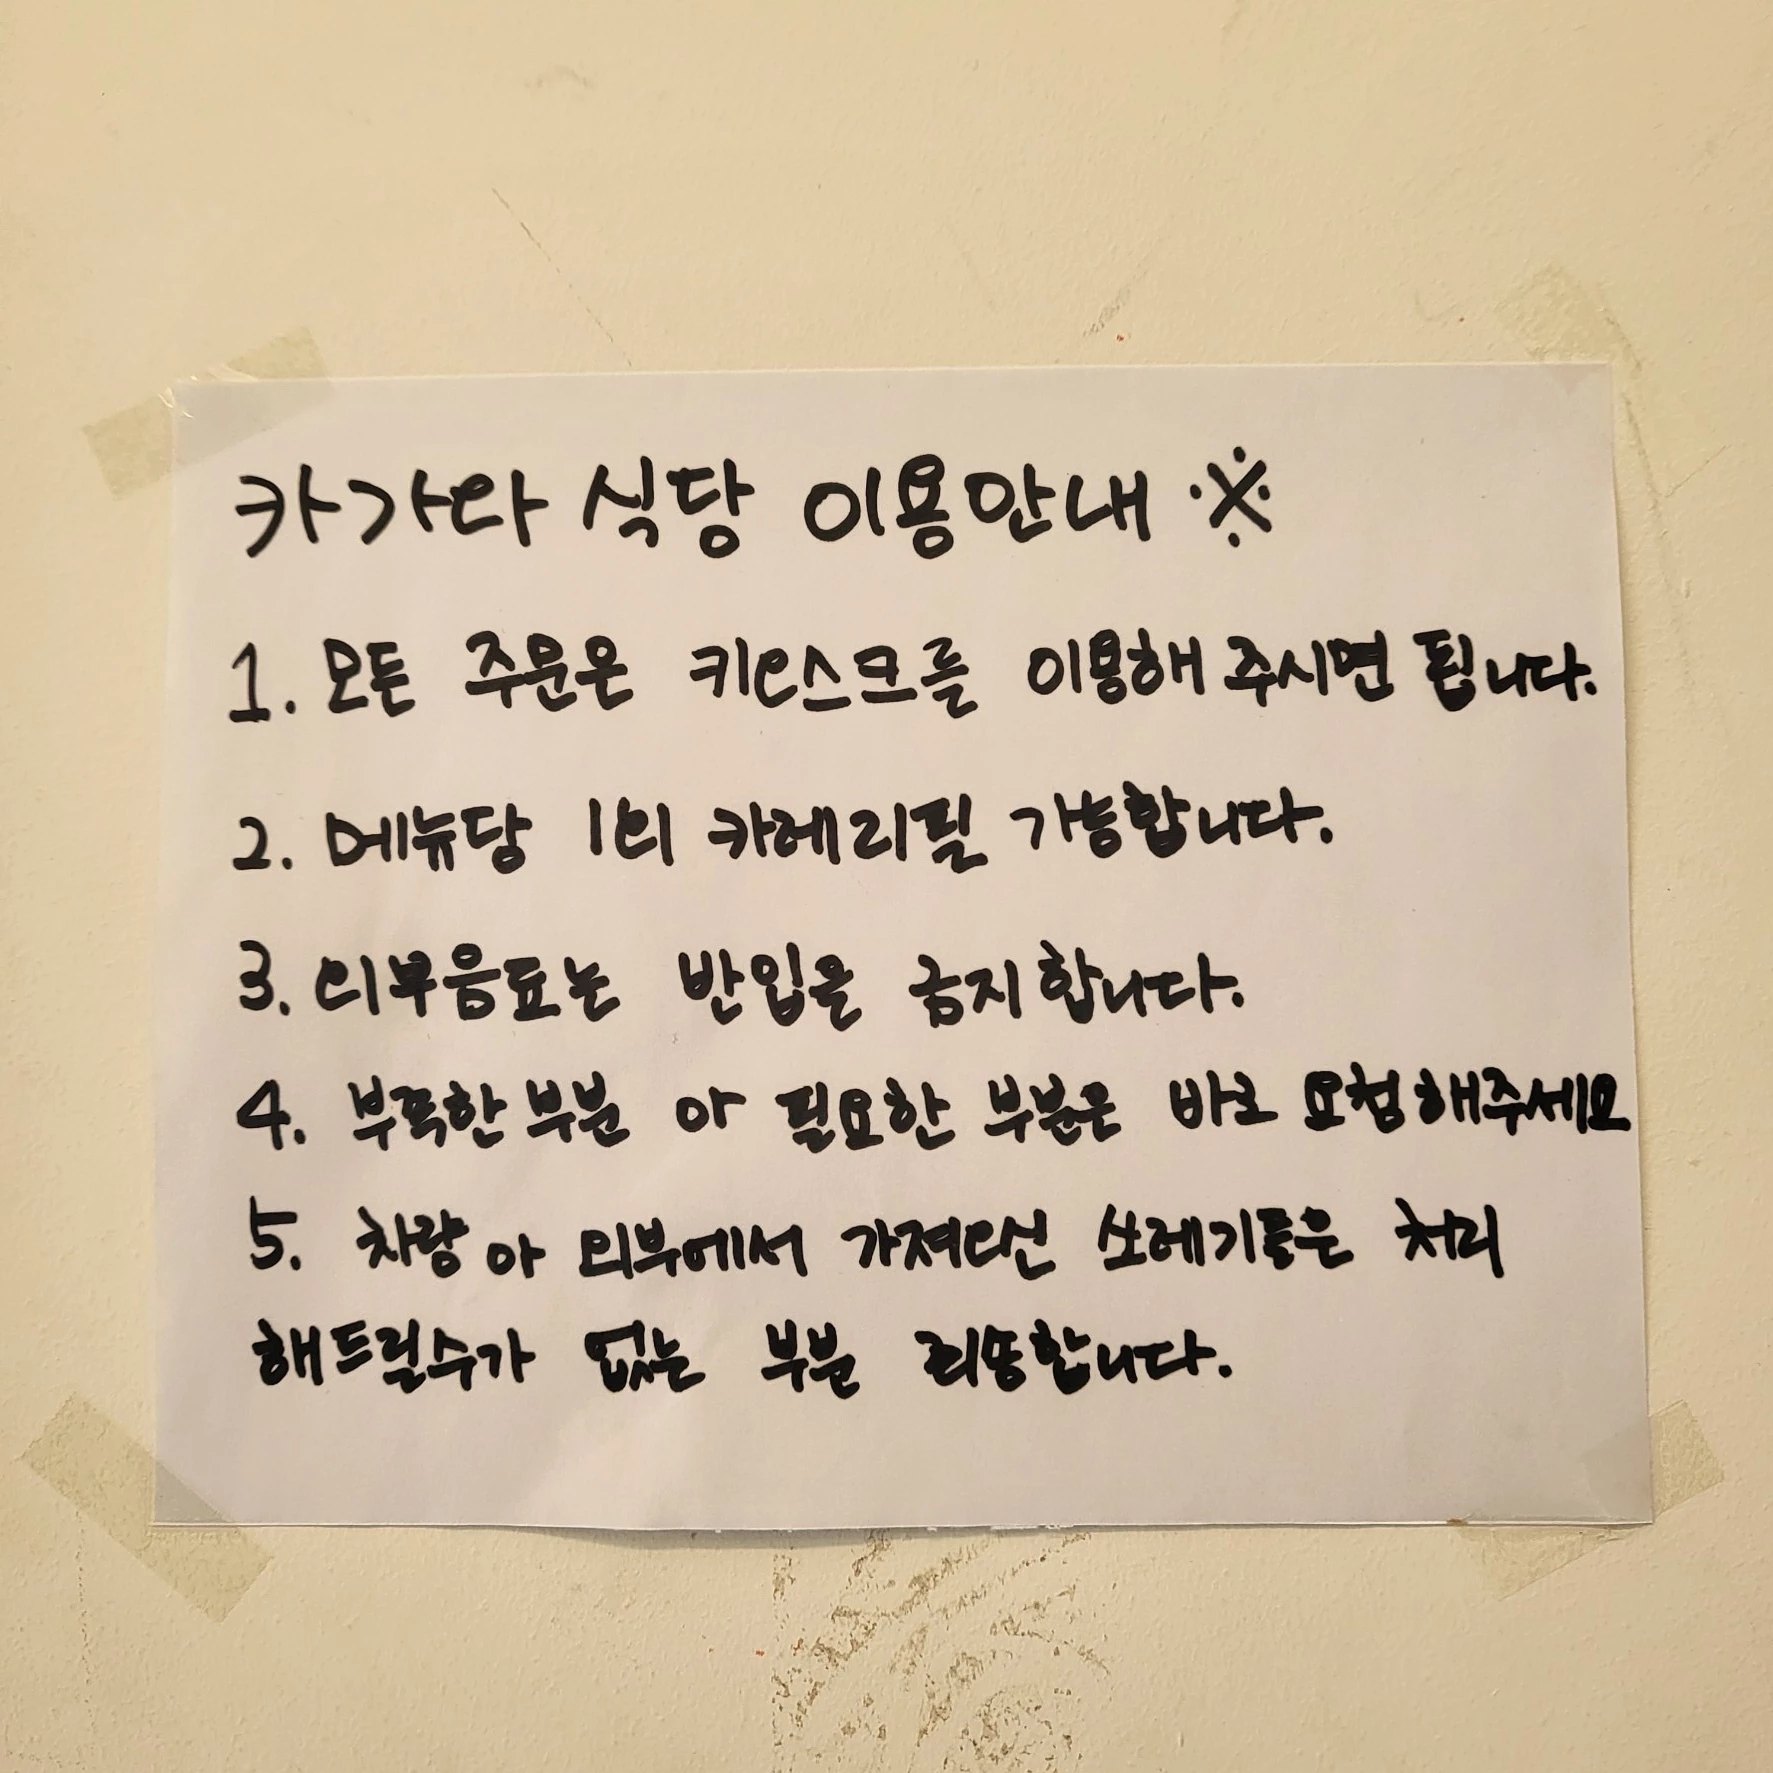 카가와 식당 이용안내 ※
1. 모든 주문은 키오스크를 이용해 주시면 됩니다.
2. 메뉴당 1회 카레리필 가능합니다.
3. 외부음료는 반입을 금지합니다.
4. 부족한 부분 이나 필요한 부분은 바로 요청해주세요
5. 차량 이나 외부에서 가져오신 쓰레기들은 처리
해드릴수가 없는 부분 죄송합니다.